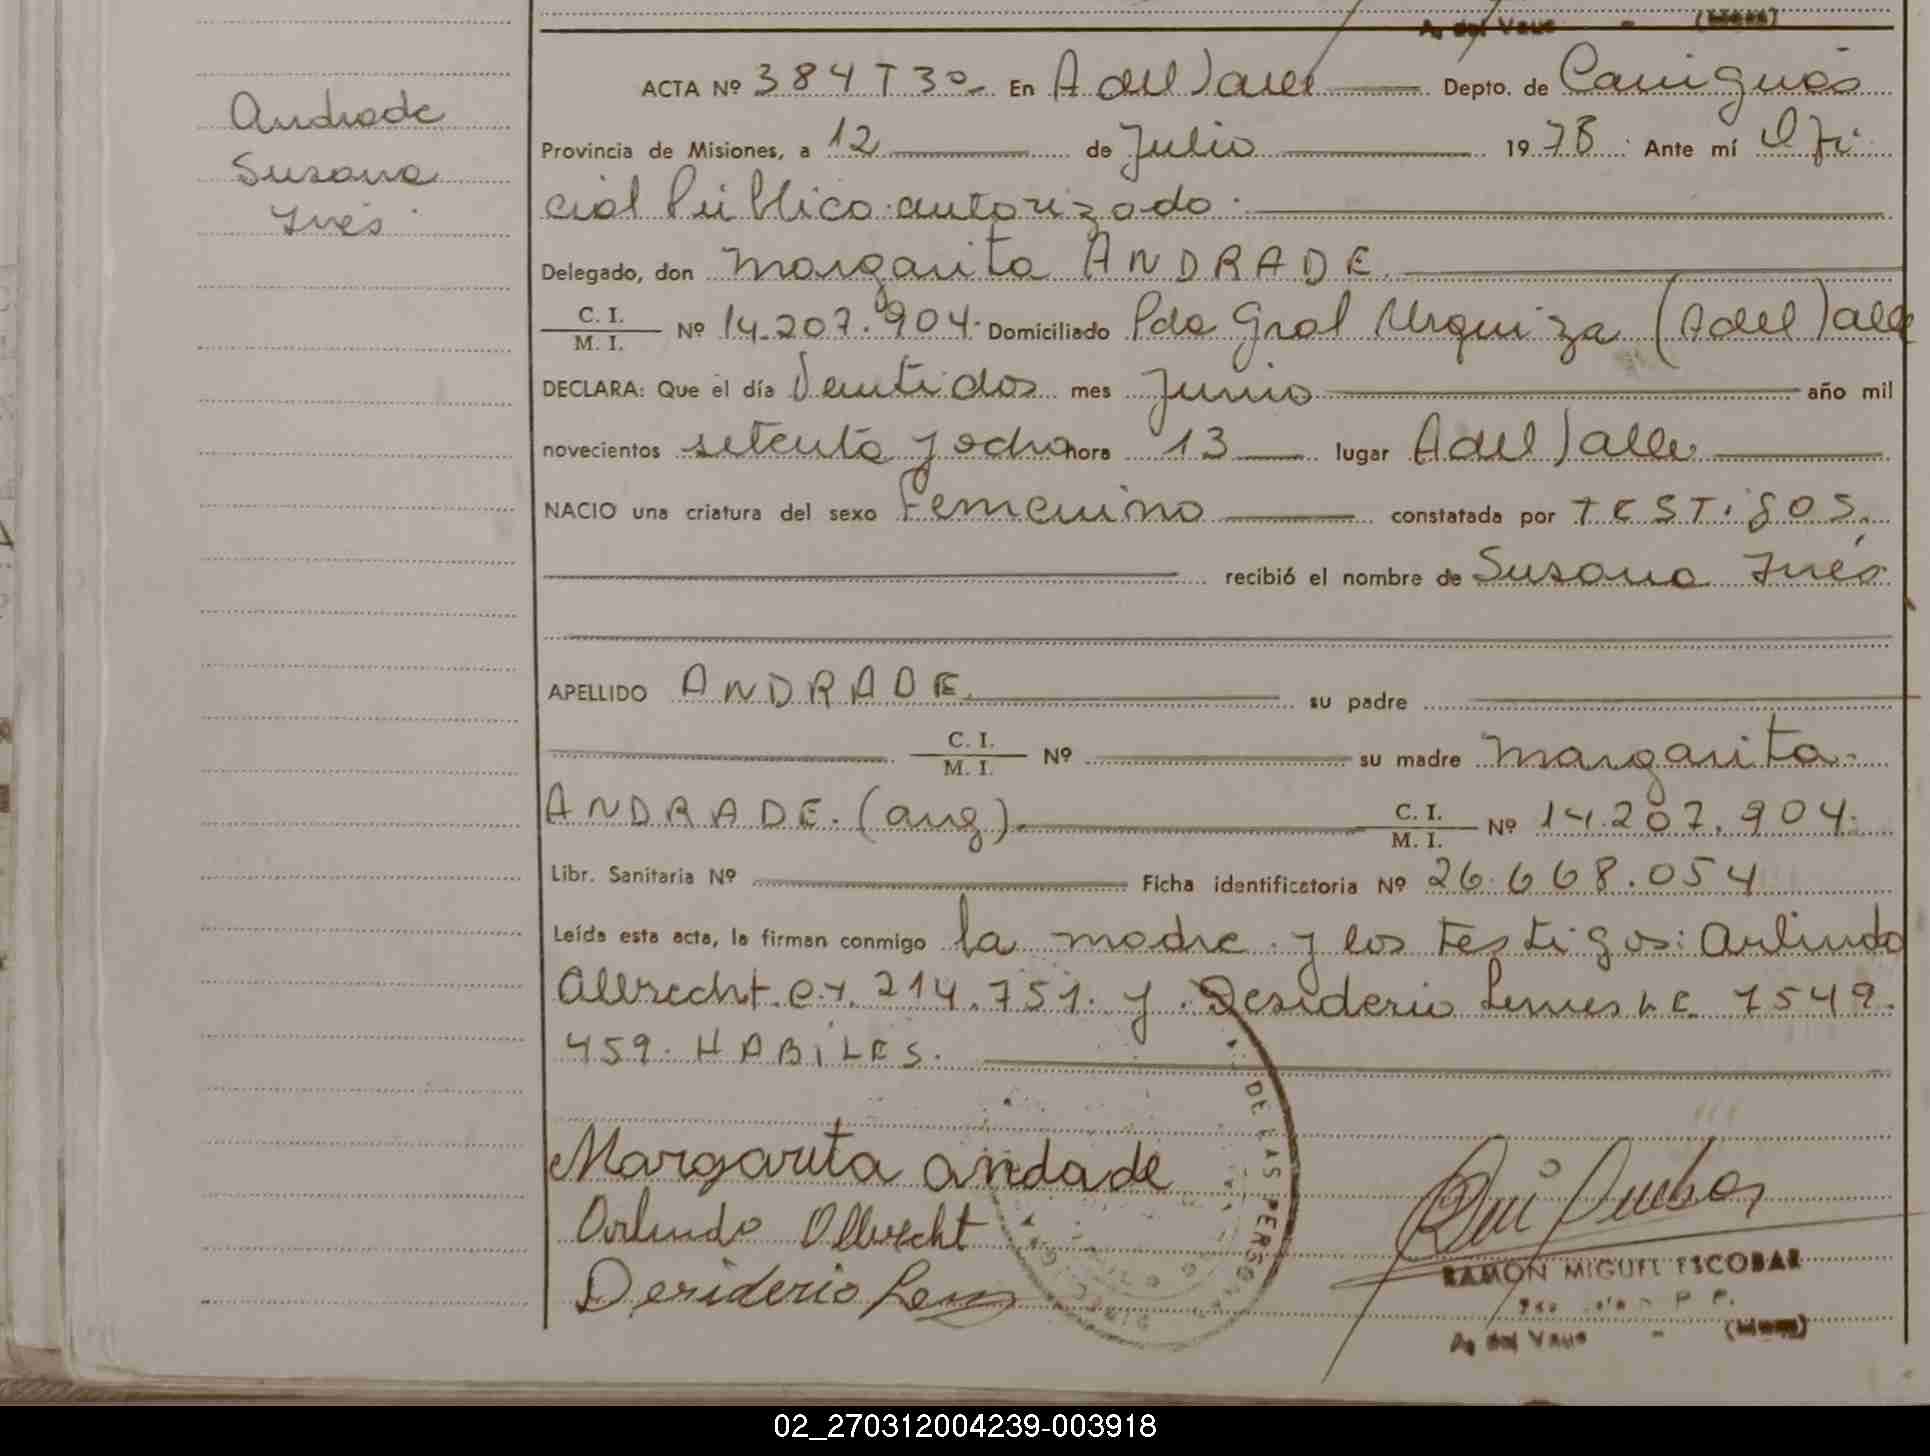 A. del Valle - (Mnes)
ACTA Nº 384 T 3º En A del Valle Depto. de Cainguás
Andrade
Susana
Inés
Provincia de Misiones, a 12 de Julio 1978. Ante mí Ofi
cial Público autorizado.
Delegado, don Margarita ANDRADE.
C. I.
M. I. Nº 14.207.904. Domiciliado Pdo Gral Urquiza (A del Valle
DECLARA: Que el día Veintidos mes Junio año mil
novecientos setenta y ocho hora 13 lugar A del Valle
NACIO una criatura del sexo Femenino constatada por TESTIGOS.
recibió el nombre de Susana Inés
APELLIDO ANDRADE. su padre
C. I.
M. I. Nº su madre Margarita
ANDRADE. (arg). C. I.
M. I. Nº 14.207.904.
Libr. Sanitaria Nº Ficha identificatoria Nº 26.668.054
Leída esta acta, la firman conmigo la madre y los testigos: Arlindo
Albrecht C.I. 214.751. y Desiderio Lemes L.E. 7549.
459. HABILES.
DE LAS PERSONAS
Margarita andade
Arlindo Olbrecht
Desiderio Lem
RAMON MIGUEL ESCOBAR
A. del Valle - (Mnes)
02_270312004239-003918